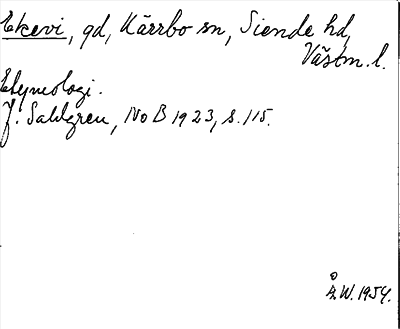 Ekevi, gd, Kärrbo sn, Siende hd,
Västm. l.
Etymologi.
J. Sahlgren, NoB 1923, s. 115.
Å.W. 1954.